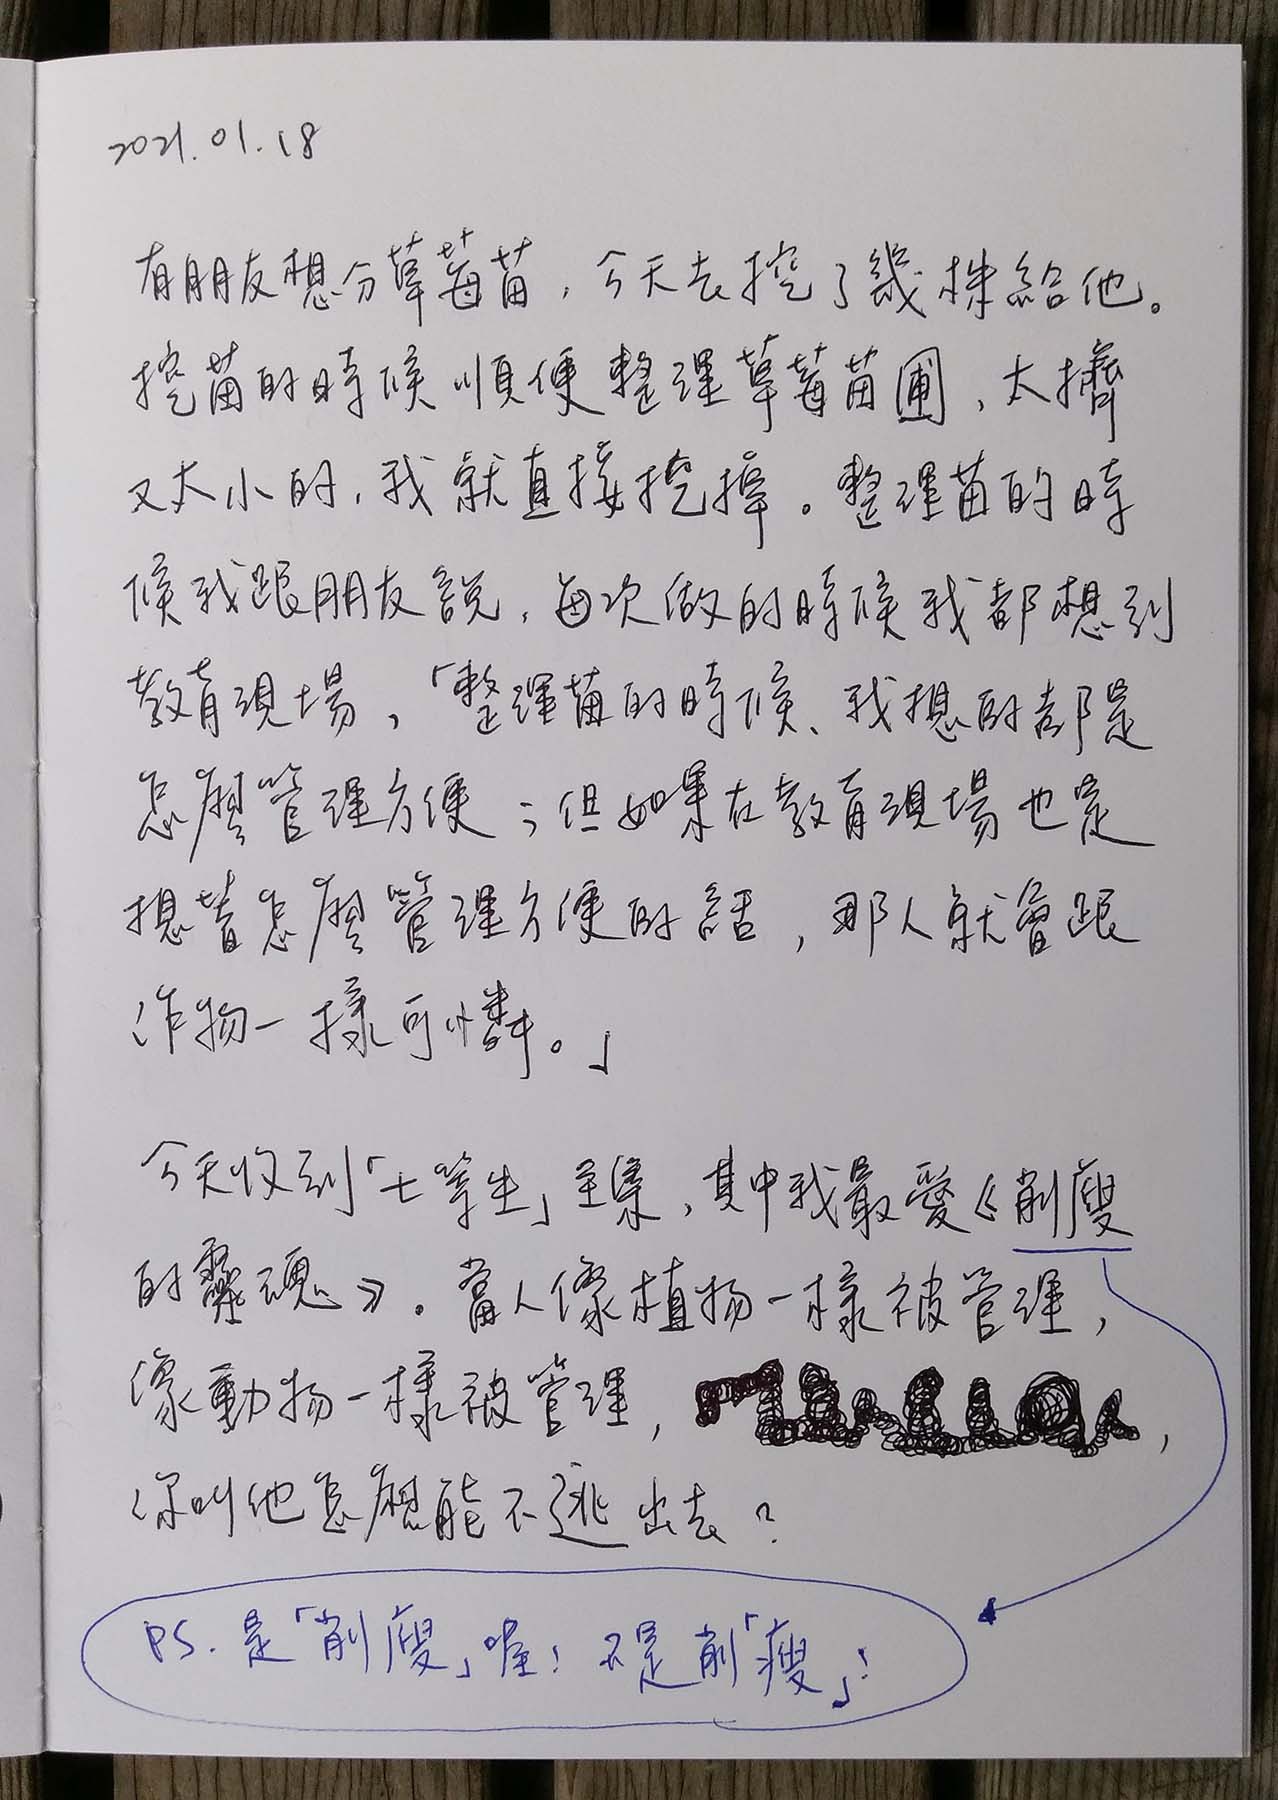 2021.01.18
有朋友想分草莓苗，今天去挖了幾株給他。
挖苗的時候順便整理草莓苗圃，太擠
又太小的，我就直接挖掉。整理苗的時
候我跟朋友說，每次做的時候我都想到
教育現場，「整理苗的時候、我想的都是
怎麼管理方便；但如果在教育現場也是
想著怎麼管理方便的話，那人就會跟
作物一樣可憐。」
今天收到「七等生」全集，其中我最愛《削廋
的靈魂》。當人像植物一樣被管理，
像動物一樣被管理，，
你叫他怎麼能不逃出去？
PS. 是「削廋」喔！不是削「瘦」！